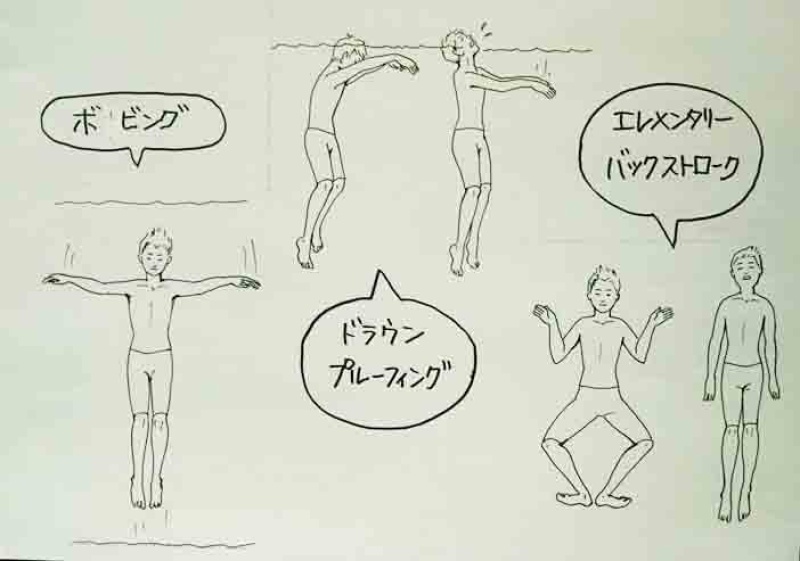 ボビング
ドラウン
プルーフィング
エレメンタリー
バックストローク